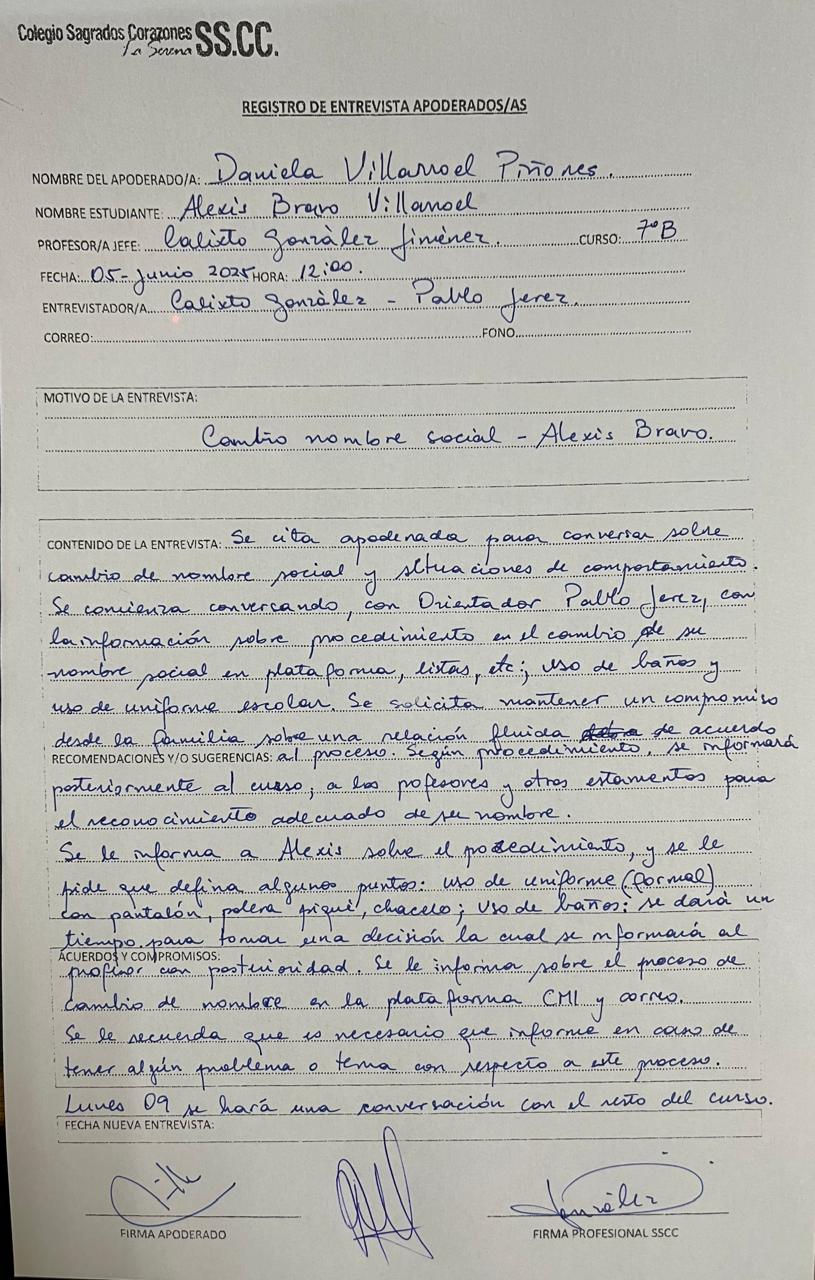 Colegio Sagrados Corazones SS.CC.
La Serena
REGISTRO DE ENTREVISTA APODERADOS/AS
NOMBRE DEL APODERADO/A: Daniela Villarroel Piñones.
NOMBRE ESTUDIANTE: Alexis Bravo Villarroel
PROFESOR/A JEFE: Calixto González Jiménez. CURSO: 7ºB
FECHA: 05-Junio 2025 HORA: 12:00.
ENTREVISTADOR/A Calixto González - Pablo Jerez.
CORREO: FONO
MOTIVO DE LA ENTREVISTA:
Cambio nombre social - Alexis Bravo.
CONTENIDO DE LA ENTREVISTA: Se cita apoderada para conversar sobre
cambio de nombre social y situaciones de comportamiento.
Se comienza conversando, con Orientador Pablo Jerez, con
la información sobre procedimiento en el cambio de su
nombre social en plataforma, listas, etc; uso de baños y
uso de uniforme escolar. Se solicita mantener un compromiso
desde la familia sobre una relación fluida de acuerdo
RECOMENDACIONES Y/O SUGERENCIAS: al proceso. Según procedimiento, se informará
posteriormente al curso, a los profesores y otros estamentos para
el reconocimiento adecuado de su nombre.
Se le informa a Alexis sobre el procedimiento, y se le
pide que defina algunos puntos: uso de uniforme (formal)
con pantalón, polera piqué, chaleco; uso de baños: se dará un
tiempo para tomar una decisión la cual se informará al
ACUERDOS Y COMPROMISOS:
profesor con posterioridad. Se le informa sobre el proceso de
cambio de nombre en la plataforma CMI y correo.
Se le recuerda que es necesario que informe en caso de
tener algún problema o tema con respecto a este proceso.
Lunes 09 se hará una conversación con el resto del curso.
FECHA NUEVA ENTREVISTA:
FIRMA APODERADO
FIRMA PROFESIONAL SSCC